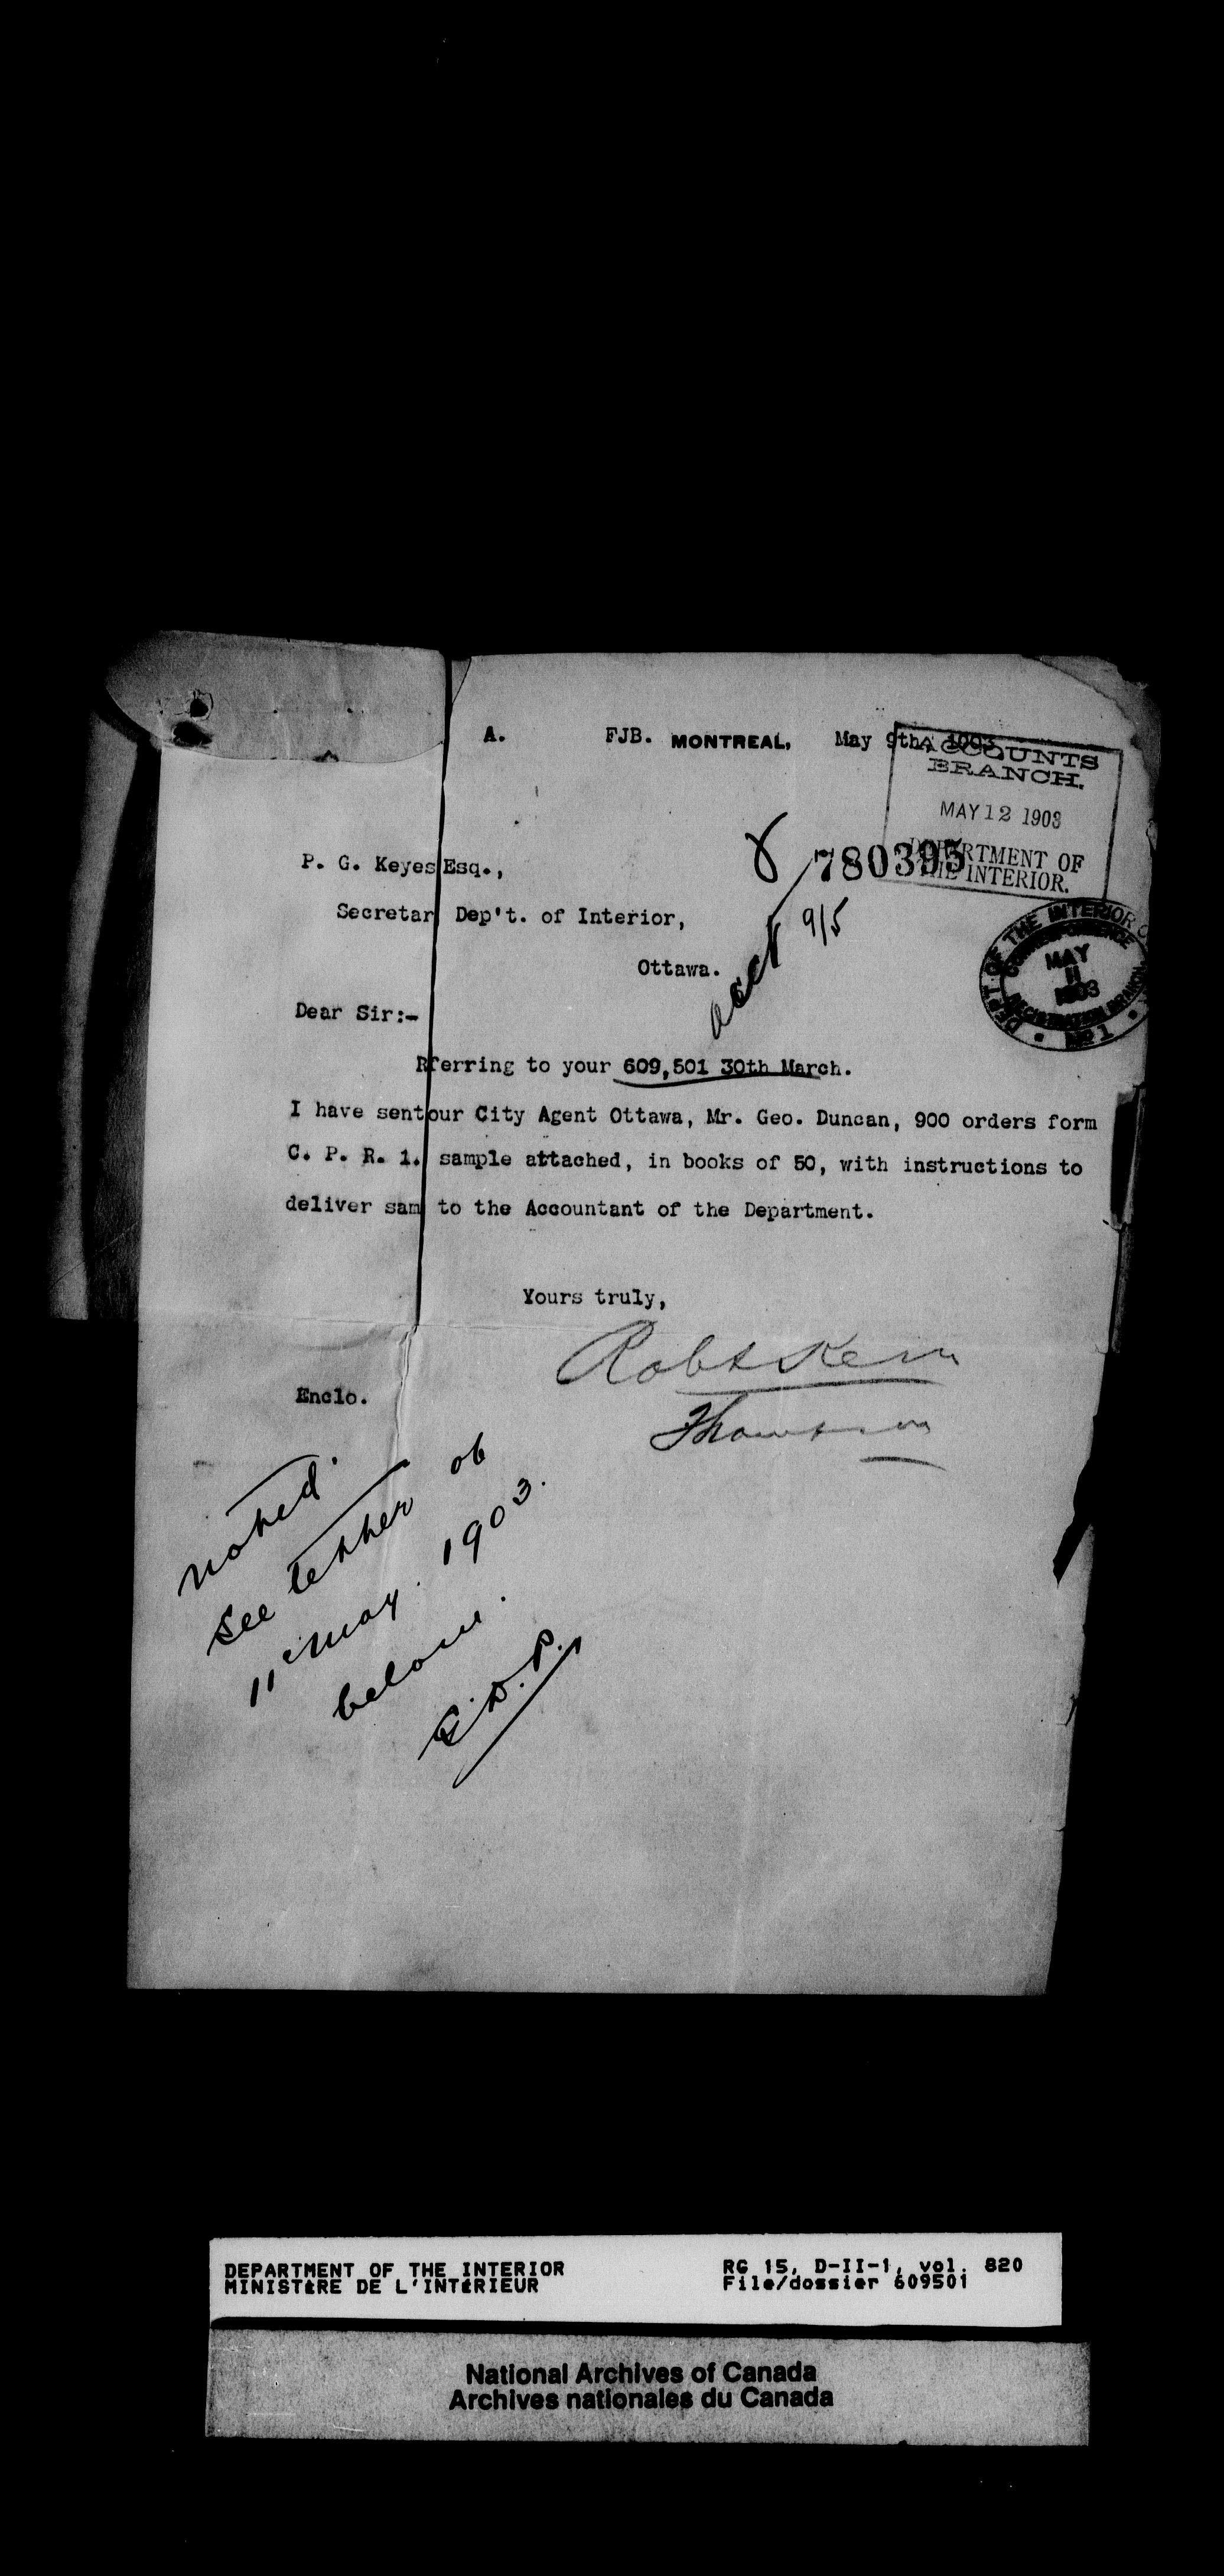 A. FJB. MONTREAL, May 9th, 1903
ACCOUNTS
BRANCH.
MAY 12 1903
DEPARTMENT OF
THE INTERIOR.
780395
P. G. Keyes Esq.,
Secretar Dep't. of Interior,
9/5
Ottawa.
acct
DEPT OF THE INTERIOR
CORRESPONDENCE
MAY
11
1903
REGISTRATION BRANCH
No 1
Dear Sir:-
Rferring to your 609,501 30th March.
I have sent our City Agent Ottawa, Mr. Geo. Duncan, 900 orders form
C. P. R. 1. sample attached, in books of 50, with instructions to
deliver sam to the Accountant of the Department.
Yours truly,
Robt Kerr
Thompson
Enclo.
noted.
See letter of
11 May. 1903.
below.
DEPARTMENT OF THE INTERIOR RG 15, D-II-1, vol. 820
MINISTÈRE DE L'INTÉRIEUR File/dossier 609501
National Archives of Canada
Archives nationales du Canada